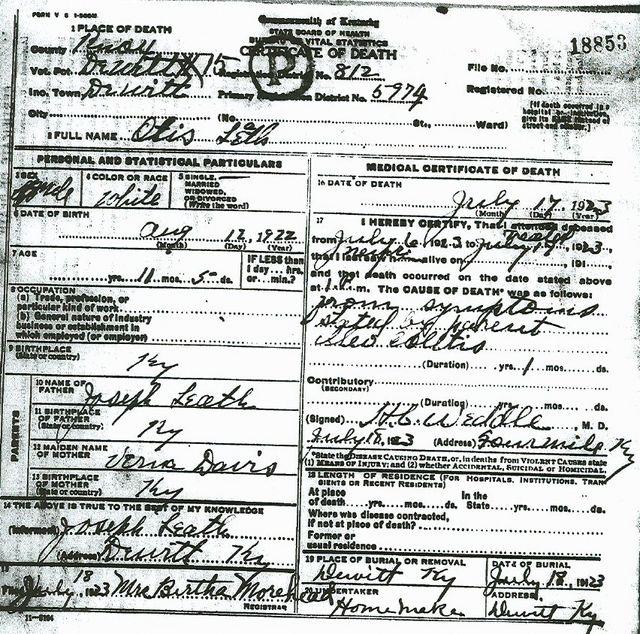 FORM V S
Commonwealth of Kentucky
STATE BOARD OF HEALTH
VITAL STATISTICS
CERTIFICATE OF DEATH
1 PLACE OF DEATH
County Knox
Vot. Pct. Dewitt
Registration District No. 812
Inc. Town Dewitt
Primary Registration District No. 5974
File No. 18853
Registered No.
City (No. St., Ward)
[If death occurred in a hospital or institution, give its NAME instead of street and number.]
2 FULL NAME Otis Leth
PERSONAL AND STATISTICAL PARTICULARS
3 SEX
4 COLOR OR RACE White
5 SINGLE, MARRIED WIDOWED, OR DIVORCED (Write the word)
6 DATE OF BIRTH
Aug 12, 1922
(Month) (Day) (Year)
7 AGE
yrs. 11 mos. 5 ds.
IF LESS than 1 day... hrs. or... min.?
8 OCCUPATION
(a) Trade, profession, or particular kind of work
(b) General nature of industry business or establishment in which employed (or employer)
9 BIRTHPLACE (State or country) Ky
PARENTS
10 NAME OF FATHER Joseph Leath
11 BIRTHPLACE OF FATHER (State or country) Ky
12 MAIDEN NAME OF MOTHER Verna Davis
13 BIRTHPLACE OF MOTHER (State or country) Ky
14 THE ABOVE IS TRUE TO THE BEST OF MY KNOWLEDGE
(Informant) Joseph Leath
(Address) Dewitt Ky
15
July 18 1923 Mrs Birtha Morehead
REGISTRAR
11-6184
MEDICAL CERTIFICATE OF DEATH
16 DATE OF DEATH
July 17, 1923
(Month) (Day) (Year)
17 I HEREBY CERTIFY, That I attended deceased
from July 16 1923 to July 17 1923,
that I last saw him alive on 191
and that death occurred on the date stated above
at 1 P.M. The CAUSE OF DEATH* was as follows:
from symptoms
stated by parent
ileo colitis
(Duration) yrs. 1 mos. ds.
Contributory (SECONDARY)
(Duration) yrs. mos. ds.
(Signed) H.C. Weddle M. D.
July 18, 1923 (Address) Fourmile Ky
*State the DISEASE CAUSING DEATH, or, in deaths from VIOLENT CAUSES state
(1) MEANS OF INJURY; and (2) whether ACCIDENTAL, SUICIDAL or HOMICIDAL
18 LENGTH OF RESIDENCE (FOR HOSPITALS, INSTITUTIONS, TRANSIENTS OR RECENT RESIDENTS)
At place of death yrs. mos. ds. In the State yrs. mos. ds.
Where was disease contracted, if not at place of death?
Former or usual residence
19 PLACE OF BURIAL OR REMOVAL Dewitt Ky
DATE OF BURIAL July 18, 1923
20 UNDERTAKER Home Make
ADDRESS Dewitt Ky